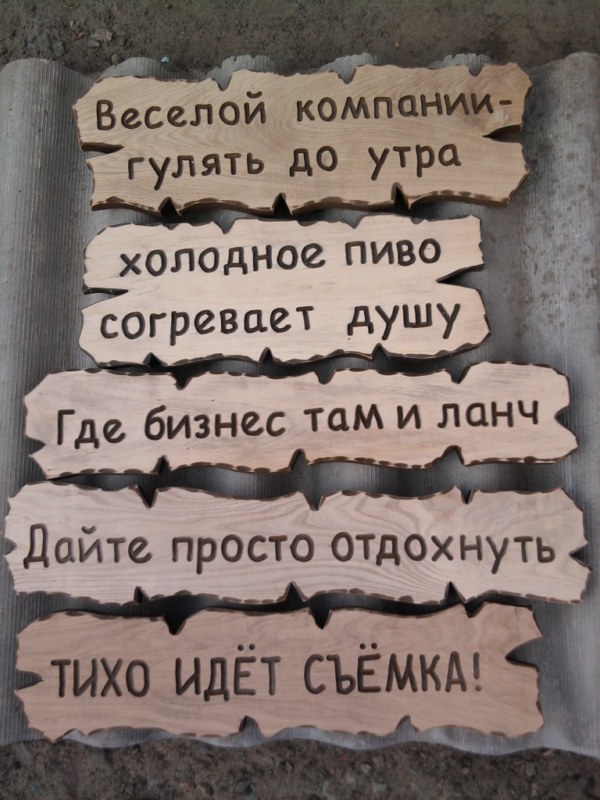 Веселой компании-
гулять до утра
холодное пиво
согревает душу
Где бизнес там и ланч
Дайте просто отдохнуть
ТИХО ИДЁТ СЪЁМКА!